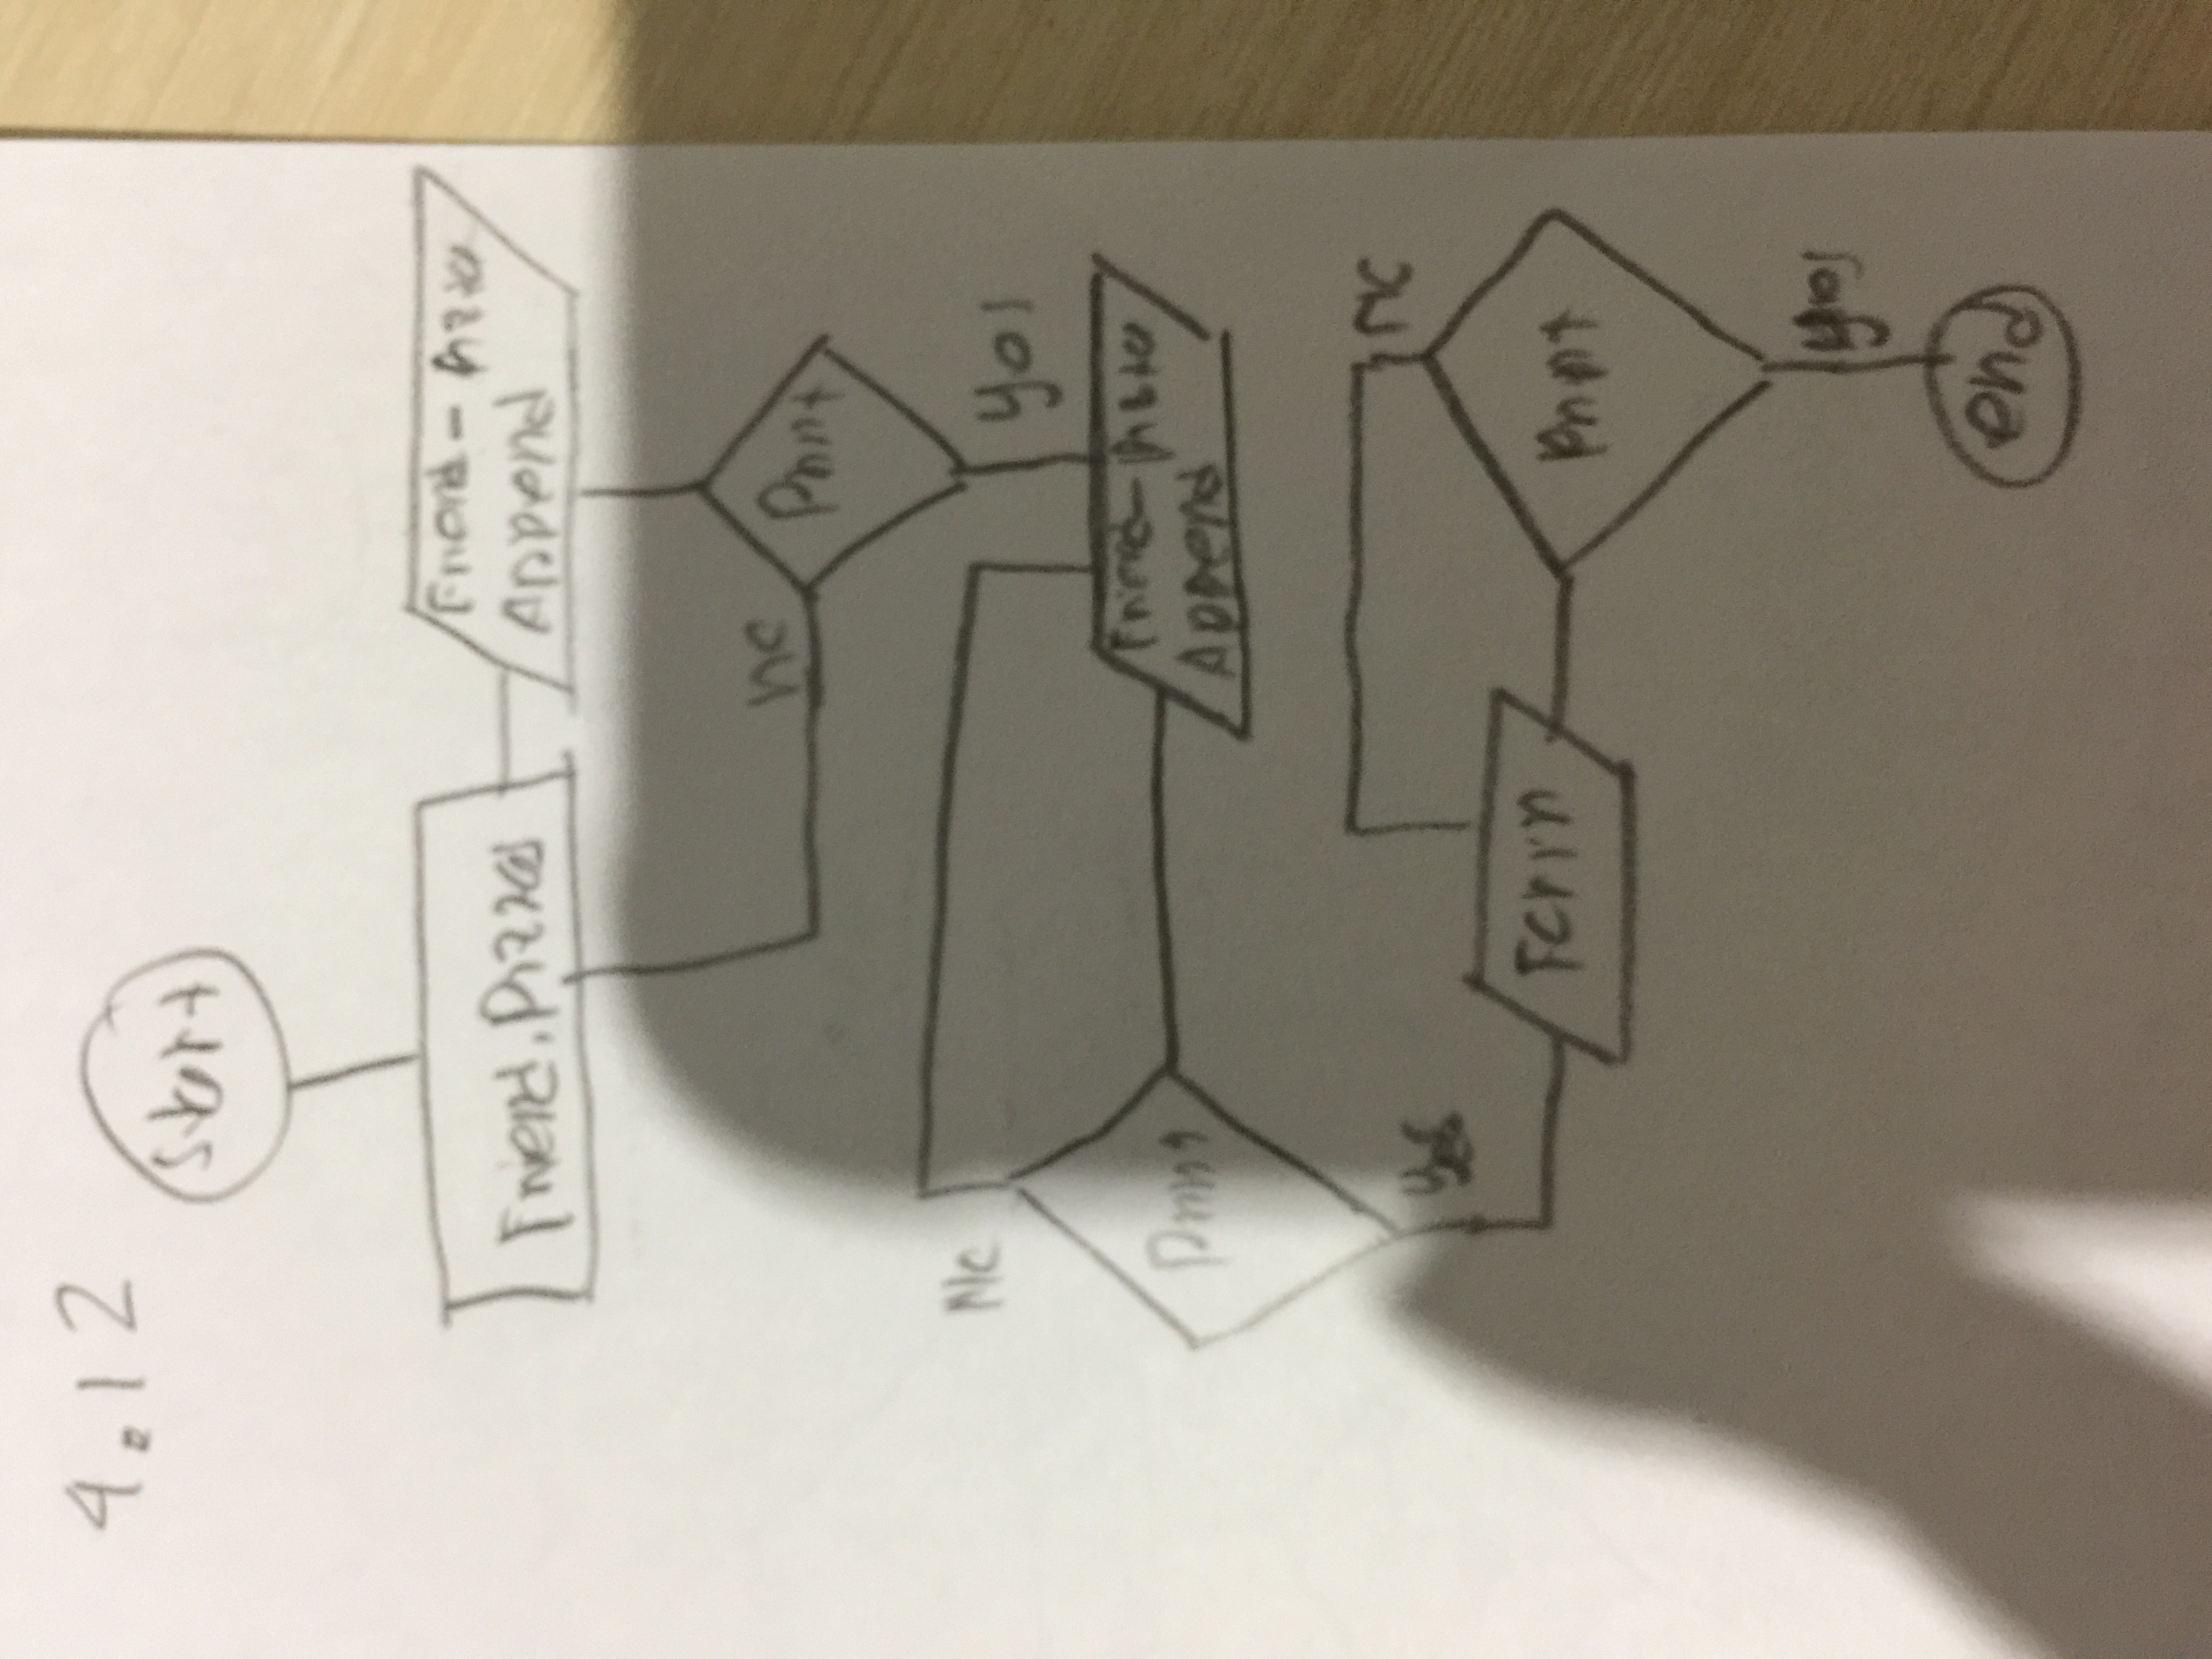 4.12
Start
Friend.Pizzas
Friend-Pizza
Append
no
Print
No
yes
Print
Friend-Pizza
Append
yes
no
For in
Print
yes
end